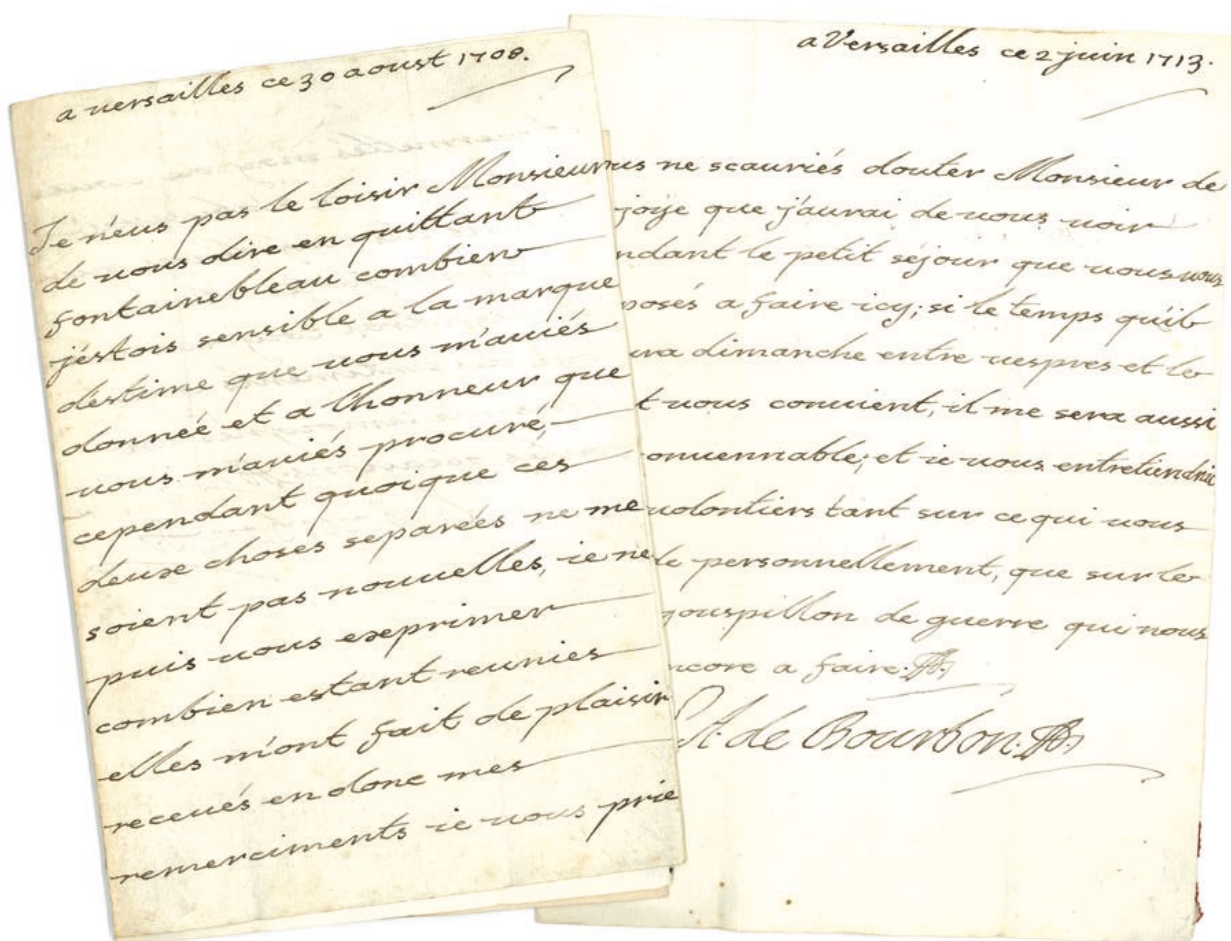 a versailles ce 30 aoust 1708.
Je n'eus pas le loisir Monsieur
de vous dire en quittant
fontainebleau combien
j'estois sensible a la marque
d'estime que vous m'auiés
donnée et a l'honneur que
vous m'auiés procuré,
cependant quoique ces
deux choses separées ne me
soient pas nouuelles, ie ne
puis vous exprimer
combien estant reunies
elles m'ont fait de plaisir
receués en donc mes
remerciments ie vous prie
a Versailles ce 2 juin 1713.
us ne scauriés douter Monsieur de
joije que j'aurai de vous voir
ndant le petit séjour que vous vous
posés a faire icy; si le temps qu'il
ura dimanche entre vespres et le
t vous conuient, il me sera aussi
onuennable; et ie vous entretiendrai
volontiers tant sur ce qui vous
de personnellement, que sur le
gouspillon de guerre qui nous
ncore a faire.
L. A. de Bourbon.